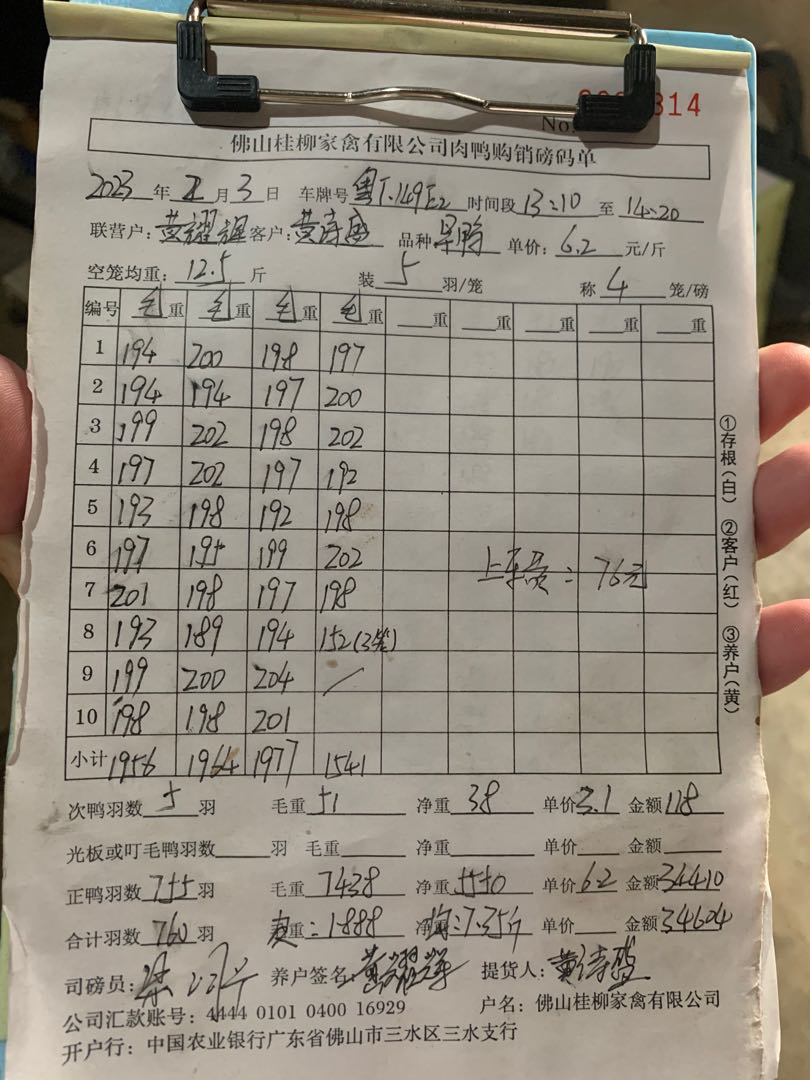 No. 314
佛山桂柳家禽有限公司肉鸭购销磅码单
2023 年 2 月 3 日 车牌号 粤T.149E2 时间段 13:10 至 14:20
联营户：黄耀辉 客户：黄诗盛 品种 单价：6.2 元/斤
空笼均重：12.5 斤 装 5 羽/笼 称 4 笼/磅
编号 毛重 毛重 毛重 毛重 重 重 重 重 重
1 194 200 198 197
2 194 194 197 200
3 199 202 198 202
4 197 202 197 192
5 193 198 192 198
6 197 195 199 202
上车费：76元
7 201 198 197 198
8 193 189 194 152(3笼)
9 199 200 204 /
10 198 198 201
小计 1956 1964 1977 1541
次鸭羽数 5 羽 毛重 51 净重 38 单价 3.1 金额 118
光板或叮毛鸭羽数 羽 毛重 净重 单价 金额
正鸭羽数 755 羽 毛重 7438 净重 5550 单价 6.2 金额 34410
合计羽数 760 羽 重：1888 均：7.35斤 单价 金额 34604
司磅员： 养户签名：黄耀辉 提货人：黄诗盛
公司汇款账号：4444 0101 0400 16929 户名：佛山桂柳家禽有限公司
开户行：中国农业银行广东省佛山市三水区三水支行
①存根(白) ②客户(红) ③养户(黄)